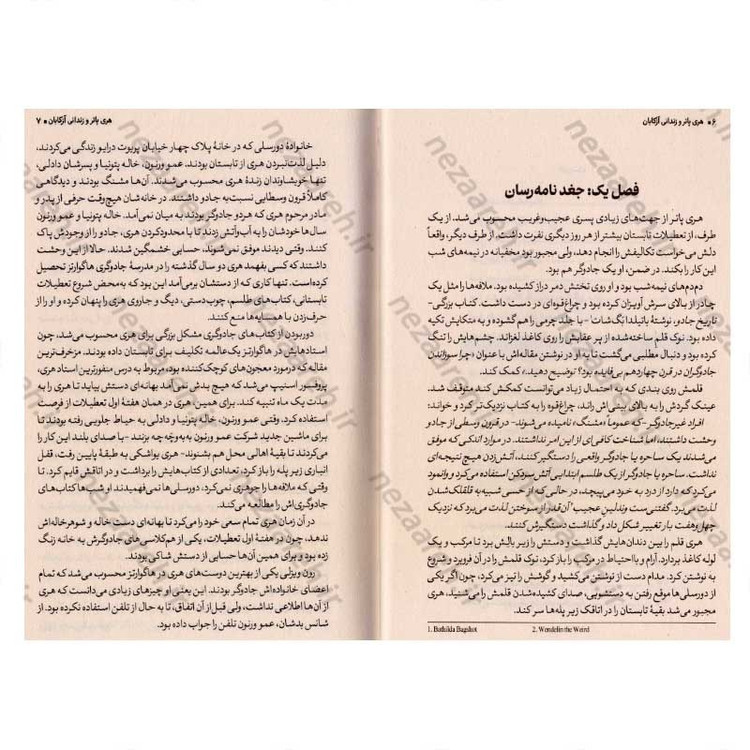 ۶ • هری پاتر و زندانی آزکابان
فصل یک: جغد نامه‌رسان
هری پاتر از جهت‌های زیادی پسری عجیب‌وغریب محسوب می‌شد. از یک
طرف، از تعطیلات تابستان بیشتر از هر روز دیگری نفرت داشت. از طرف دیگر، واقعاً
دلش می‌خواست تکالیفش را انجام دهد، ولی مجبور بود مخفیانه در نیمه‌های شب
این کار را بکند. در ضمن، او یک جادوگر هم بود.
دم‌دم‌های نیمه‌شب بود و او روی تختش دمر دراز کشیده بود. ملافه‌ها را مثل یک
چادر از بالای سرش آویزان کرده بود و چراغ‌قوه‌ای در دست داشت. کتاب بزرگی -
تاریخ جادو، نوشتهٔ باتیلدا بگ‌شات۱ - با جلد چرمی را هم گشوده و به متکایش تکیه
داده بود. نوک قلم ساخته‌شده از پر عقابش را روی کاغذ لغزاند. چشم‌هایش را تنگ
کرده بود و دنبال مطلبی می‌گشت تا به او در نوشتن مقاله‌اش با عنوان «چرا سوزاندن
جادوگران در قرن چهاردهم بی‌فایده بود؟ توضیح دهید.» کمک کند.
قلمش روی بندی که به احتمال زیاد می‌توانست کمکش کند متوقف شد.
عینک گردش را به بالای بینی‌اش راند، چراغ‌قوه را به کتاب نزدیک‌تر کرد و خواند:
افراد غیرجادوگر -که عموماً «مشنگ» نامیده می‌شوند- در قرون وسطی از جادو
وحشت داشتند، اما شناخت کافی‌ای از این امر نداشتند. در موارد اندکی که موفق
می‌شدند ساحره یا جادوگر واقعی را دستگیر کنند، آتش‌زدن هیچ نتیجه‌ای
نداشت. ساحره یا جادوگر از یک طلسم ابتدایی آتش سردکن استفاده می‌کرد و وانمود
می‌کرد که دارد از درد به خود می‌پیچد، در حالی که از حسی شبیه به قلقلک‌شدن
لذت می‌برد. گفتنی‌ست وندلین عجیب۲ آن‌قدر از سوختن لذت می‌برد که نزدیک
چهل‌وهفت بار تغییر شکل داد و گذاشت دستگیرش کنند.
هری قلم را بین دندان‌هایش گذاشت و دستش را زیر بالش برد تا مرکب و یک
لوله کاغذ بردارد. آرام و بااحتیاط در مرکب را باز کرد، نوک قلمش را در آن فروبرد و شروع
به نوشتن کرد. مدام دست از نوشتن می‌کشید و گوشش را تیز می‌کرد، چون اگر یکی
از دورسلی‌ها موقع رفتن به دستشویی، صدای کشیده‌شدن قلمش را می‌شنید، هری
مجبور می‌شد بقیهٔ تابستان را در اتاقک زیر پله‌ها سر کند.
1. Bathilda Bagshot 2. Wendelin the Weird
هری پاتر و زندانی آزکابان • ۷
خانوادهٔ دورسلی که در خانهٔ پلاک چهار خیابان پریوت درایو زندگی می‌کردند،
دلیل لذت‌نبردن هری از تابستان بودند. عمو ورنون، خاله پتونیا و پسرشان دادلی،
تنها خویشاوندان زندهٔ هری محسوب می‌شدند. آن‌ها مشنگ بودند و دیدگاهی
کاملاً قرون وسطایی نسبت به جادو داشتند. در خانه‌شان هیچ‌وقت حرفی از پدر و
مادر مرحوم هری که هر دو جادوگر بودند به میان نمی‌آمد. خاله پتونیا و عمو ورنون
سال‌ها خودشان را به آب‌وآتش زدند تا با محدودکردن هری، جادو را از وجودش پاک
کنند. وقتی دیدند موفق نمی‌شوند، حسابی خشمگین شدند. حالا از این وحشت
داشتند که کسی بفهمد هری دو سال گذشته را در مدرسهٔ جادوگری هاگوارتز تحصیل
کرده‌است. تنها کاری که از دستشان برمی‌آمد این بود که به‌محض شروع تعطیلات
تابستانی، کتاب‌های طلسم، چوب‌دستی، دیگ و جاروی هری را پنهان کرده و او را از
حرف‌زدن با همسایه‌ها منع کنند.
دوربودن از کتاب‌های جادوگری مشکل بزرگی برای هری محسوب می‌شد، چون
استادهایش در هاگوارتز یک عالمه تکلیف برای تابستان داده بودند. مزخرف‌ترین
مقاله که درمورد معجون‌های کوچک‌کننده بود، مربوط به درس منفورترین استاد هری،
پروفسور اسنیپ می‌شد که هیچ بدش نمی‌آمد بهانه‌ای دستش بیاید تا هری را به
مدت یک ماه تنبیه کند. برای همین، هری در همان هفتهٔ اول تعطیلات از فرصت
استفاده کرد. وقتی عمو ورنون، خاله پتونیا و دادلی به حیاط جلویی رفته بودند تا
برای ماشین جدید شرکت عمو ورنون به‌به‌وچه‌چه بزنند - با صدای بلند این کار را
می‌کردند تا بقیهٔ اهالی محل هم بشنوند- هری یواشکی به طبقهٔ پایین رفت، قفل
انباری زیر پله را باز کرد، تعدادی از کتاب‌هایش را برداشت و در اتاقش قایم کرد. تا
وقتی که ملافه‌ها را جوهری نمی‌کرد، دورسلی‌ها نمی‌فهمیدند او شب‌ها کتاب‌های
جادوگری‌اش را مطالعه می‌کند.
در آن زمان هری تمام سعی خود را می‌کرد تا بهانه‌ای دست خاله و شوهرخاله‌اش
ندهد، چون در هفتهٔ اول تعطیلات، یکی از هم‌کلاسی‌های جادوگرش به خانه زنگ
زده بود و برای همین آن‌ها حسابی از دستش شاکی بودند.
رون ویزلی یکی از بهترین دوست‌های هری در هاگوارتز محسوب می‌شد که تمام
اعضای خانواده‌اش جادوگر بودند. این یعنی او چیزهای زیادی می‌دانست که هری
از آن‌ها اطلاعی نداشت، ولی قبل از آن اتفاق، تا به حال از تلفن استفاده نکرده بود. از
شانس بدشان، عمو ورنون تلفن را جواب داده بود.
nezaarseh.ir